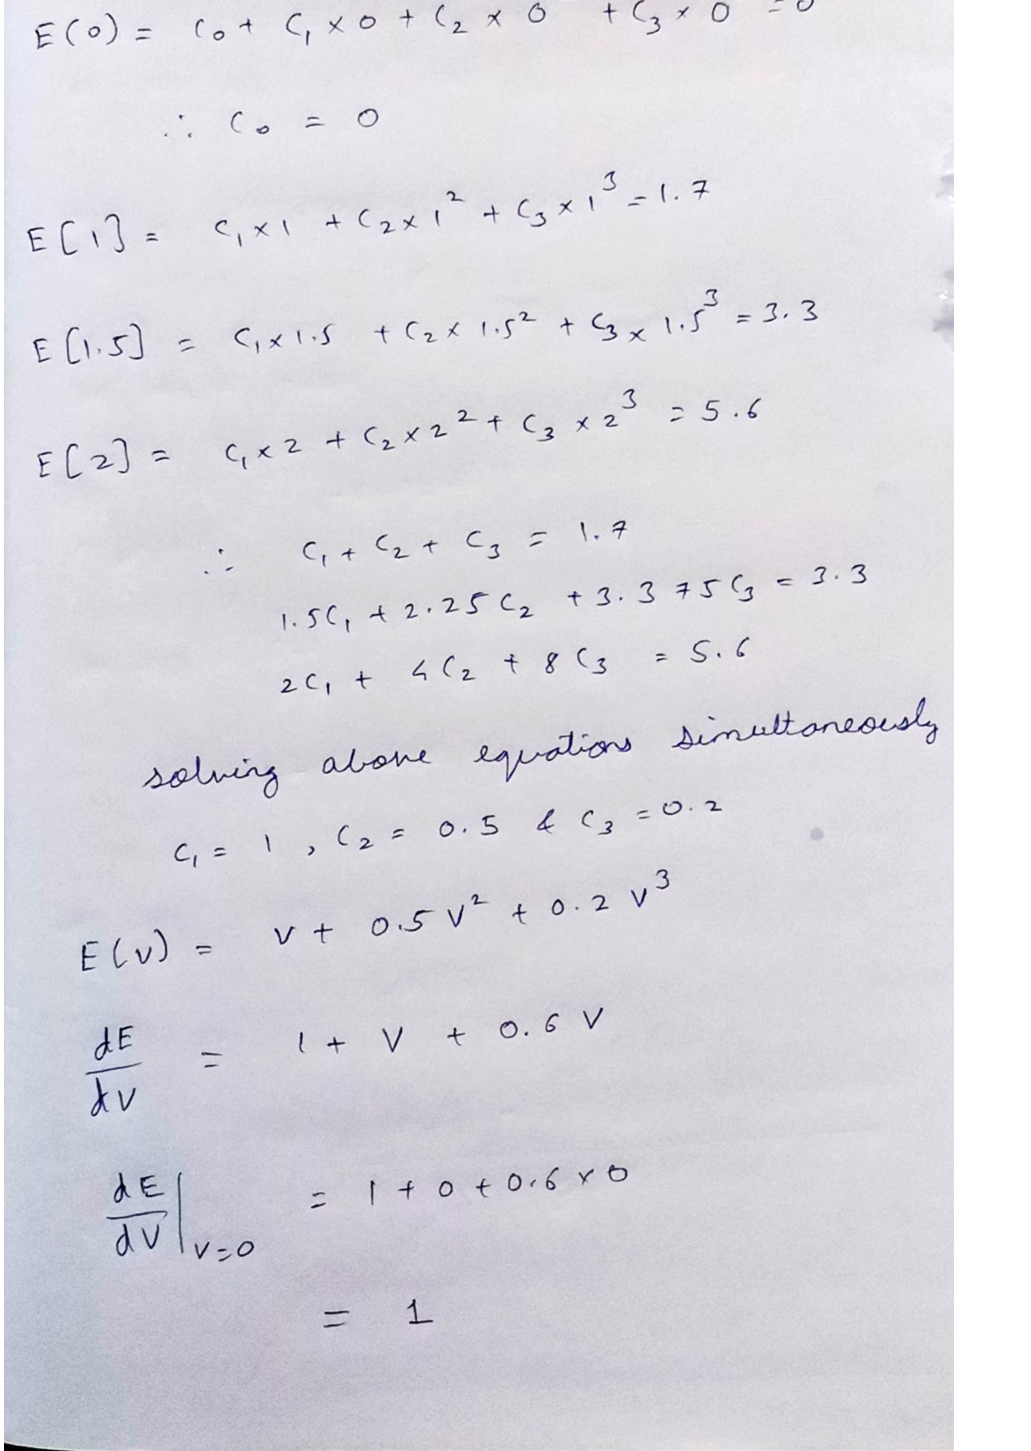 E(0) = C₀ + C₁ × 0 + C₂ × 0 + C₃ × 0 = 0
∴ C₀ = 0
E[1] = C₁ × 1 + C₂ × 1² + C₃ × 1³ = 1.7
E[1.5] = C₁ × 1.5 + C₂ × 1.5² + C₃ × 1.5³ = 3.3
E[2] = C₁ × 2 + C₂ × 2² + C₃ × 2³ = 5.6
∴ C₁ + C₂ + C₃ = 1.7
1.5C₁ + 2.25C₂ + 3.375C₃ = 3.3
2C₁ + 4C₂ + 8C₃ = 5.6
solving above equations simultaneously
C₁ = 1, C₂ = 0.5 & C₃ = 0.2
E(v) = v + 0.5v² + 0.2v³
dE/dv = 1 + v + 0.6v
dE/dv|v=0 = 1 + 0 + 0.6 × 0
= 1